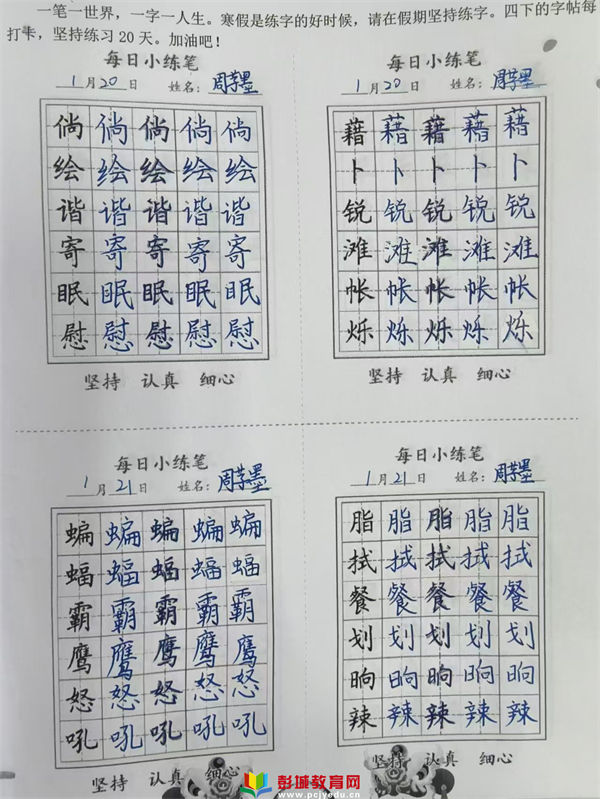 一笔一世界，一字一人生。寒假是练字的好时候，请在假期坚持练字。四下的字帖每
打卡，坚持练习20天。加油吧！
每日小练笔
1月20日 姓名：周芓墨
倘倘倘倘倘
绘绘绘绘绘
谐谐谐谐谐
寄寄寄寄寄
眠眠眠眠眠
慰慰慰慰慰
坚持 认真 细心
每日小练笔
1月20日 姓名：周芓墨
藉藉藉藉藉
卜卜卜卜卜
锐锐锐锐锐
滩滩滩滩滩
帐帐帐帐帐
烁烁烁烁烁
坚持 认真 细心
每日小练笔
1月21日 姓名：周芓墨
蝙蝙蝙蝙蝙
蝠蝠蝠蝠蝠
霸霸霸霸霸
鹰鹰鹰鹰鹰
怒怒怒怒怒
吼吼吼吼吼
坚持 认真 细心
每日小练笔
1月21日 姓名：周芓墨
脂脂脂脂脂
拭拭拭拭拭
餐餐餐餐餐
划划划划划
晌晌晌晌晌
辣辣辣辣辣
坚持 认真 细心
彭城教育网
www.pcjyedu.cn